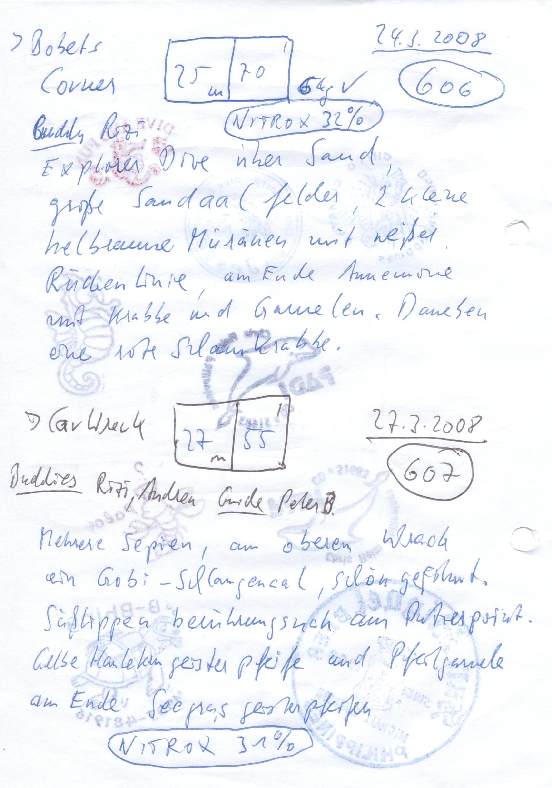 > Bobets 24.3.2008
Corner 25 m 70' 6kg √ 606
Buddy Rizi NITROX 32%
Explorer Dive über Sand,
große Sandaal felder, 2 kleine
hellbraune Muränen mit weißer
Rückenlinie, am Ende Annemone
mit Krabbe und Garnelen. Daneben
eine rote Schamkrabbe.
> Car Wreck 27 m 55' 27.3.2008
607
Buddies Rizi, Andrea Guide Peter B.
Mehrere Sepien, am oberen Wrack
ein Gobi-Schlangenaal, schön gefärbt.
Süßlippen berührungsnah am Putzerpoint.
Gelbe Harlekingeisterpfeife und Pfeilgarnele
am Ende Seegrasgeisterpfeifen
NITROX 31%